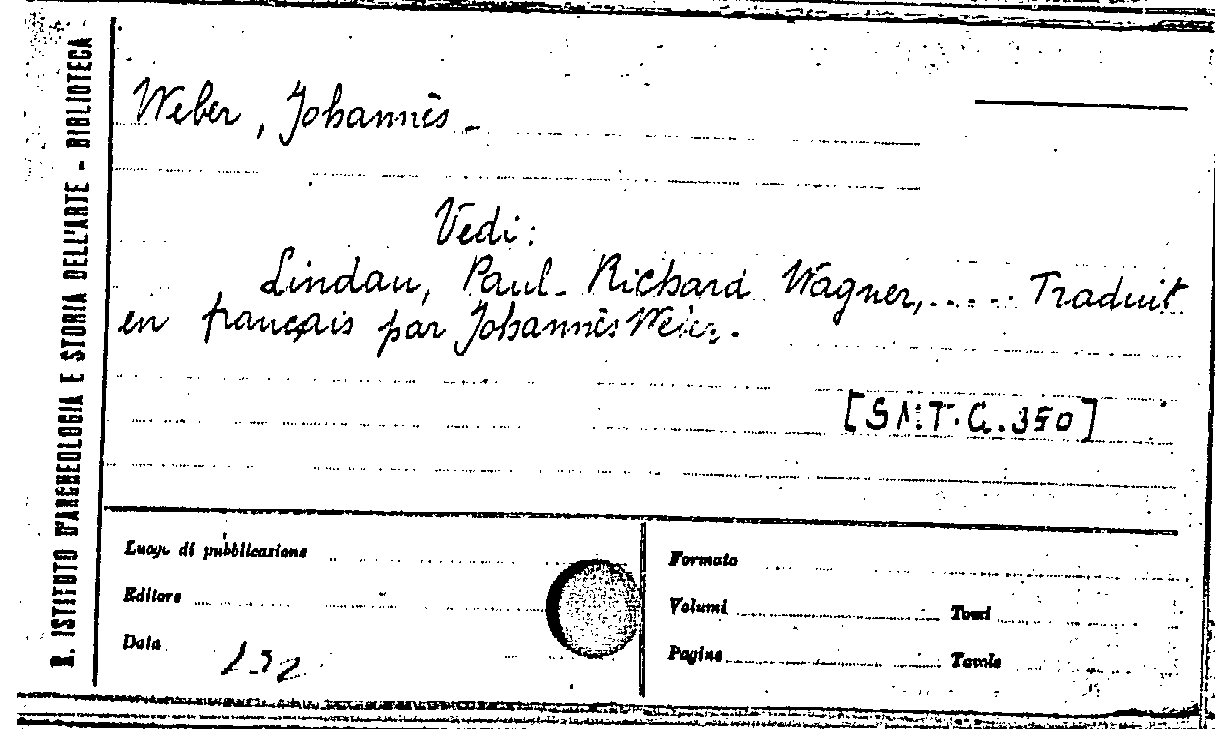 R. ISTITUTO D'ARCHEOLOGIA E STORIA DELL'ARTE - BIBLIOTECA
Weber, Johannès -
Vedi:
Lindau, Paul - Richard Wagner, ..... Traduit
en français par Johannès Weber.
[S.M.T.G.350]
Luogo di pubblicazione
Editore
Data 132
Formato
Volumi Tomi
Pagine Tavole